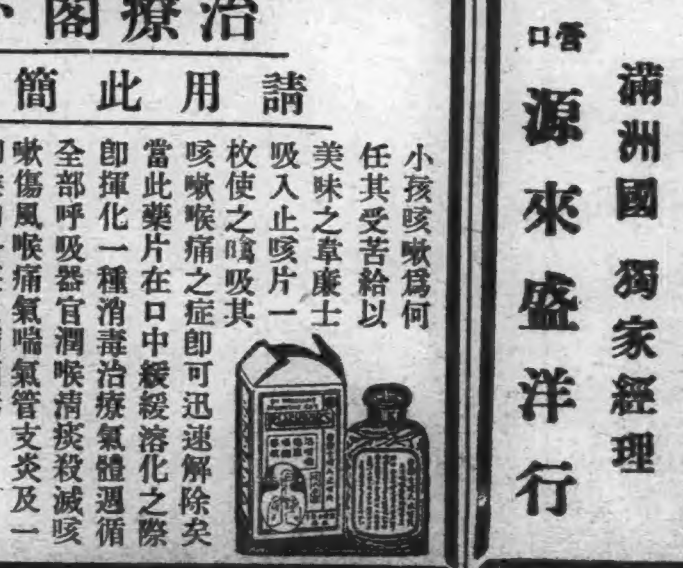 滿洲國 獨家經理
營口
源來盛洋行
治療閣
請用此簡
小孩咳嗽爲何
任其受苦給以
美味之韋廉士
吸入止咳片一
枚使之噙吸其
咳嗽喉痛之症卽可迅速解除矣
當此藥片在口中緩緩溶化之際
卽揮化一種消毒治療氣體週循
全部呼吸器官潤喉清痰殺滅咳
嗽傷風喉痛氣喘氣管支炎及一